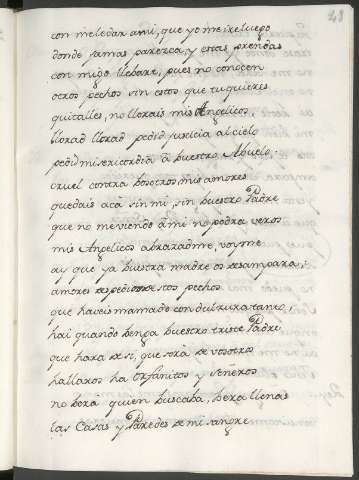 28
con meledar ami, que yo me ire luego
donde jamas parezca, y estas prendas
con migo llebare, pues no conocen
otros pechos sin estos que tu quieres
quitalles, no llorais mis Angelicos
llorad llorad pedid justicia al cielo
pedid misericordia â buestro Abuelo,
cruel contra bosotros mis amores
quedais acâ sin mi, sin buestro Padre
que no me viendo â mi no podra veros
mis Angelicos abrazadme, voyme
ay que ya buestra madre os desampara,
amores despedios destos pechos
que haveis mamado con dulzura tanto,
hai quando benga buestro triste Padre
que hara de si, que sera de vosotros
hallaros ha Orfanitos y
no bera quien buscaba, bera llenas
las Casas y Paredes de mi sangre